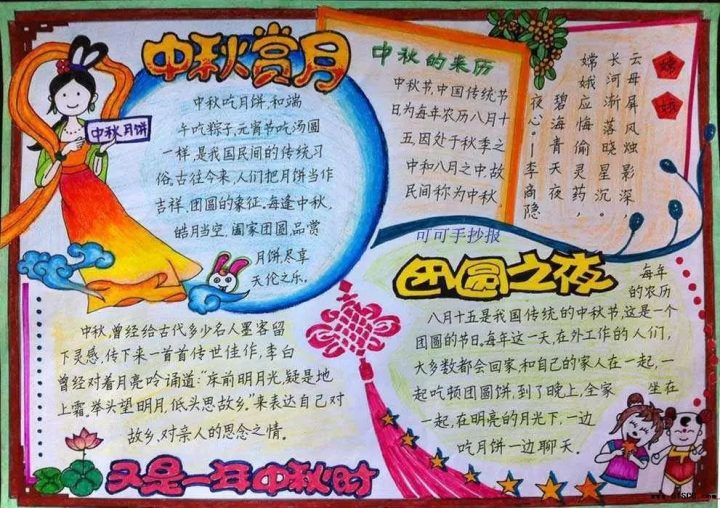 中秋赏月
中秋月饼
中秋吃月饼,和端
午吃粽子,元宵节吃汤圆
一样,是我国民间的传统习
俗,古往今来,人们把月饼当作
吉祥,团圆的象征,每逢中秋,
皓月当空,阖家团圆,品赏
月饼尽享
天伦之乐。
中秋的来历
中秋节,中国传统节
日为每年农历八月十
五,因处于秋季之
中和八月之中,故
民间称为中秋,
嫦娥
云母屏风烛影深,
长河渐落晓星沉。
嫦娥应悔偷灵药,
碧海青天夜
夜心。——李商隐
可可手抄报
团圆之夜
每年
的农历
八月十五是我国传统的中秋节,这是一个
团圆的节日,每年这一天,在外工作的人们,
大多数都会回家,和自己的家人在一起,一
起吃顿团圆饼,到了晚上,全家坐在
一起,在明亮的月光下,一边
吃月饼一边聊天。
中秋,曾经给古代多少名人墨客留
下灵感,传下来一首首传世佳作,李白
曾经对着月亮吟诵道:"床前明月光,疑是地
上霜,举头望明月,低头思故乡。"来表达自己对
故乡,对亲人的思念之情。
又是一年中秋时